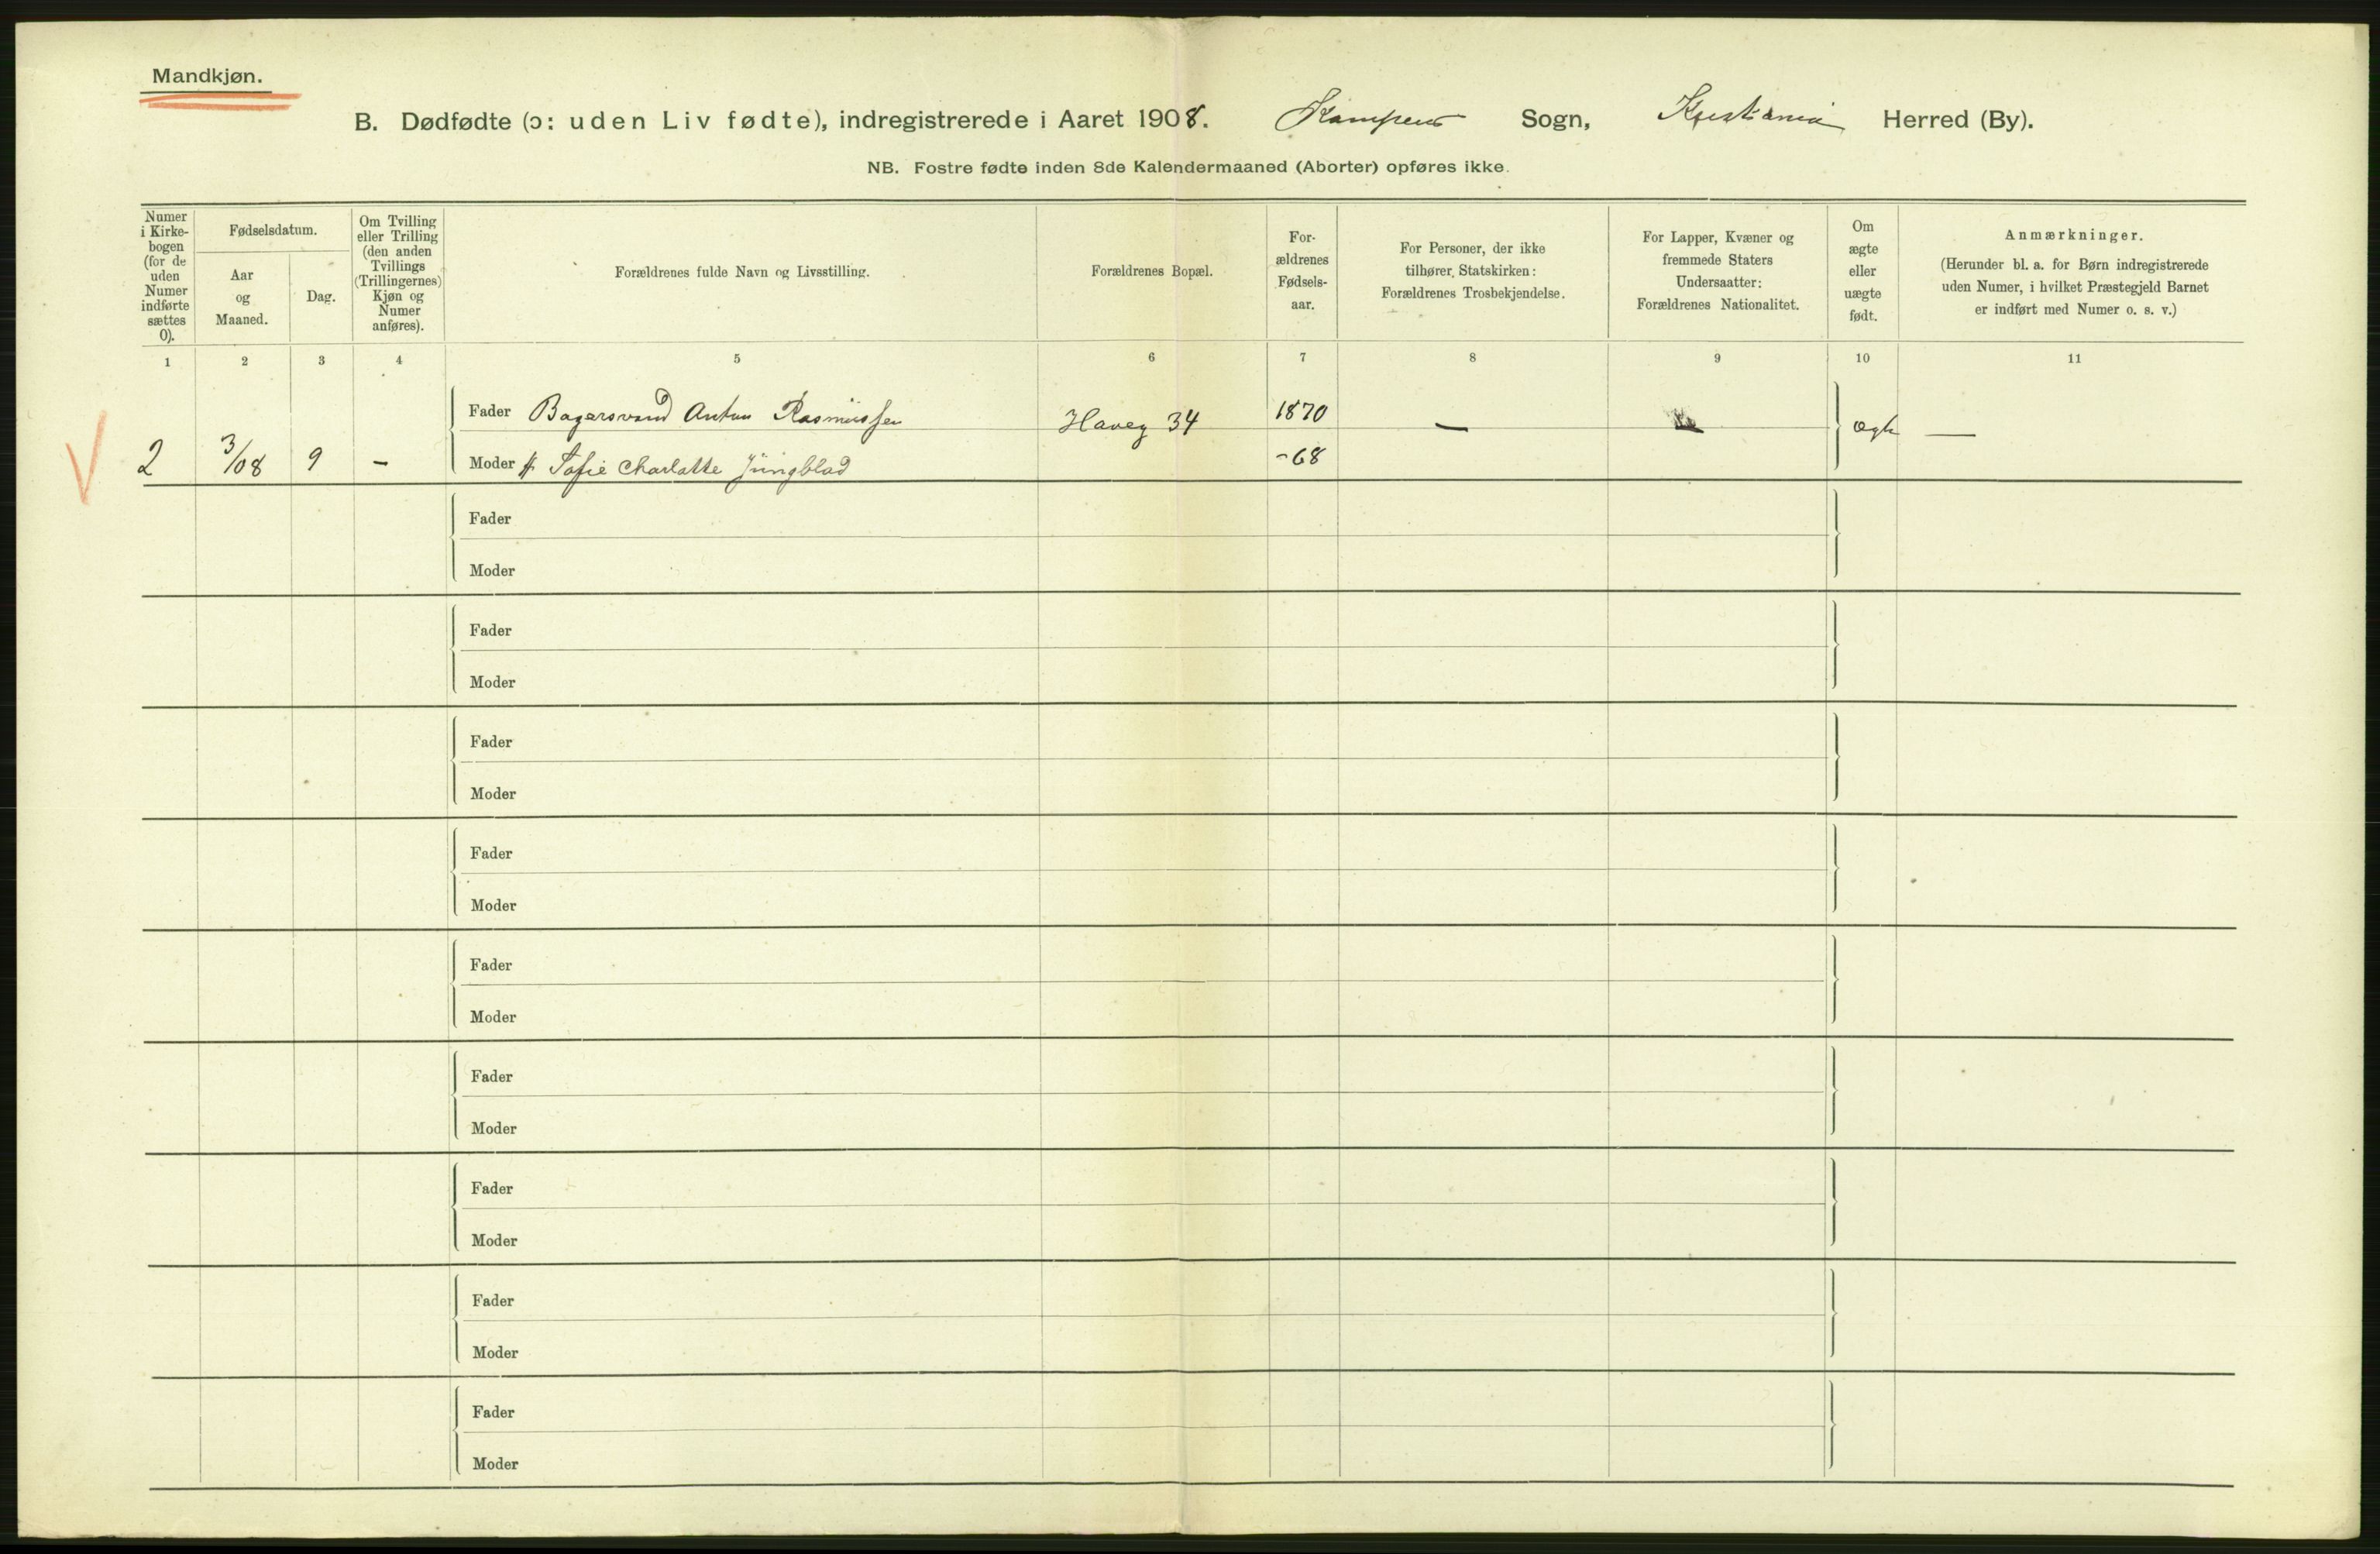 Mandkjøn.
B. Dødfødte (ɔ: uden Liv fødte), indregistrerede i Aaret 1908. Kampens Sogn, Kristiania Herred (By).
NB. Fostre fødte inden 8de Kalendermaaned (Aborter) opføres ikke.
Numer
i Kirke-
bogen
(for de
uden
Numer
indførte
sættes
0).
Fødselsdatum.
Aar
og
Maaned.
Dag.
Om Tvilling
eller Trilling
(den anden
Tvillings
(Trillingernes)
Kjøn og
Numer
anføres).
Forældrenes fulde Navn og Livsstilling.
Forældrenes Bopæl.
For-
ældrenes
Fødsels-
aar.
For Personer, der ikke
tilhører Statskirken:
Forældrenes Trosbekjendelse.
For Lapper, Kvæner og
fremmede Staters
Undersaatter:
Forældrenes Nationalitet.
Om
ægte
eller
uægte
født.
Anmærkninger.
(Herunder bl. a. for Børn indregistrerede
uden Numer, i hvilket Præstegjeld Barnet
er indført med Numer o. s. v.)
1 2 3 4 5 6 7 8 9 10 11
Fader Bagersvend Anton Rasmussen Haveg 34 1870 — ægte —
2 3/08 9 - Moder Sofie Charlotte Jüngblad -68
Fader
Moder
Fader
Moder
Fader
Moder
Fader
Moder
Fader
Moder
Fader
Moder
Fader
Moder
Fader
Moder
Fader
Moder